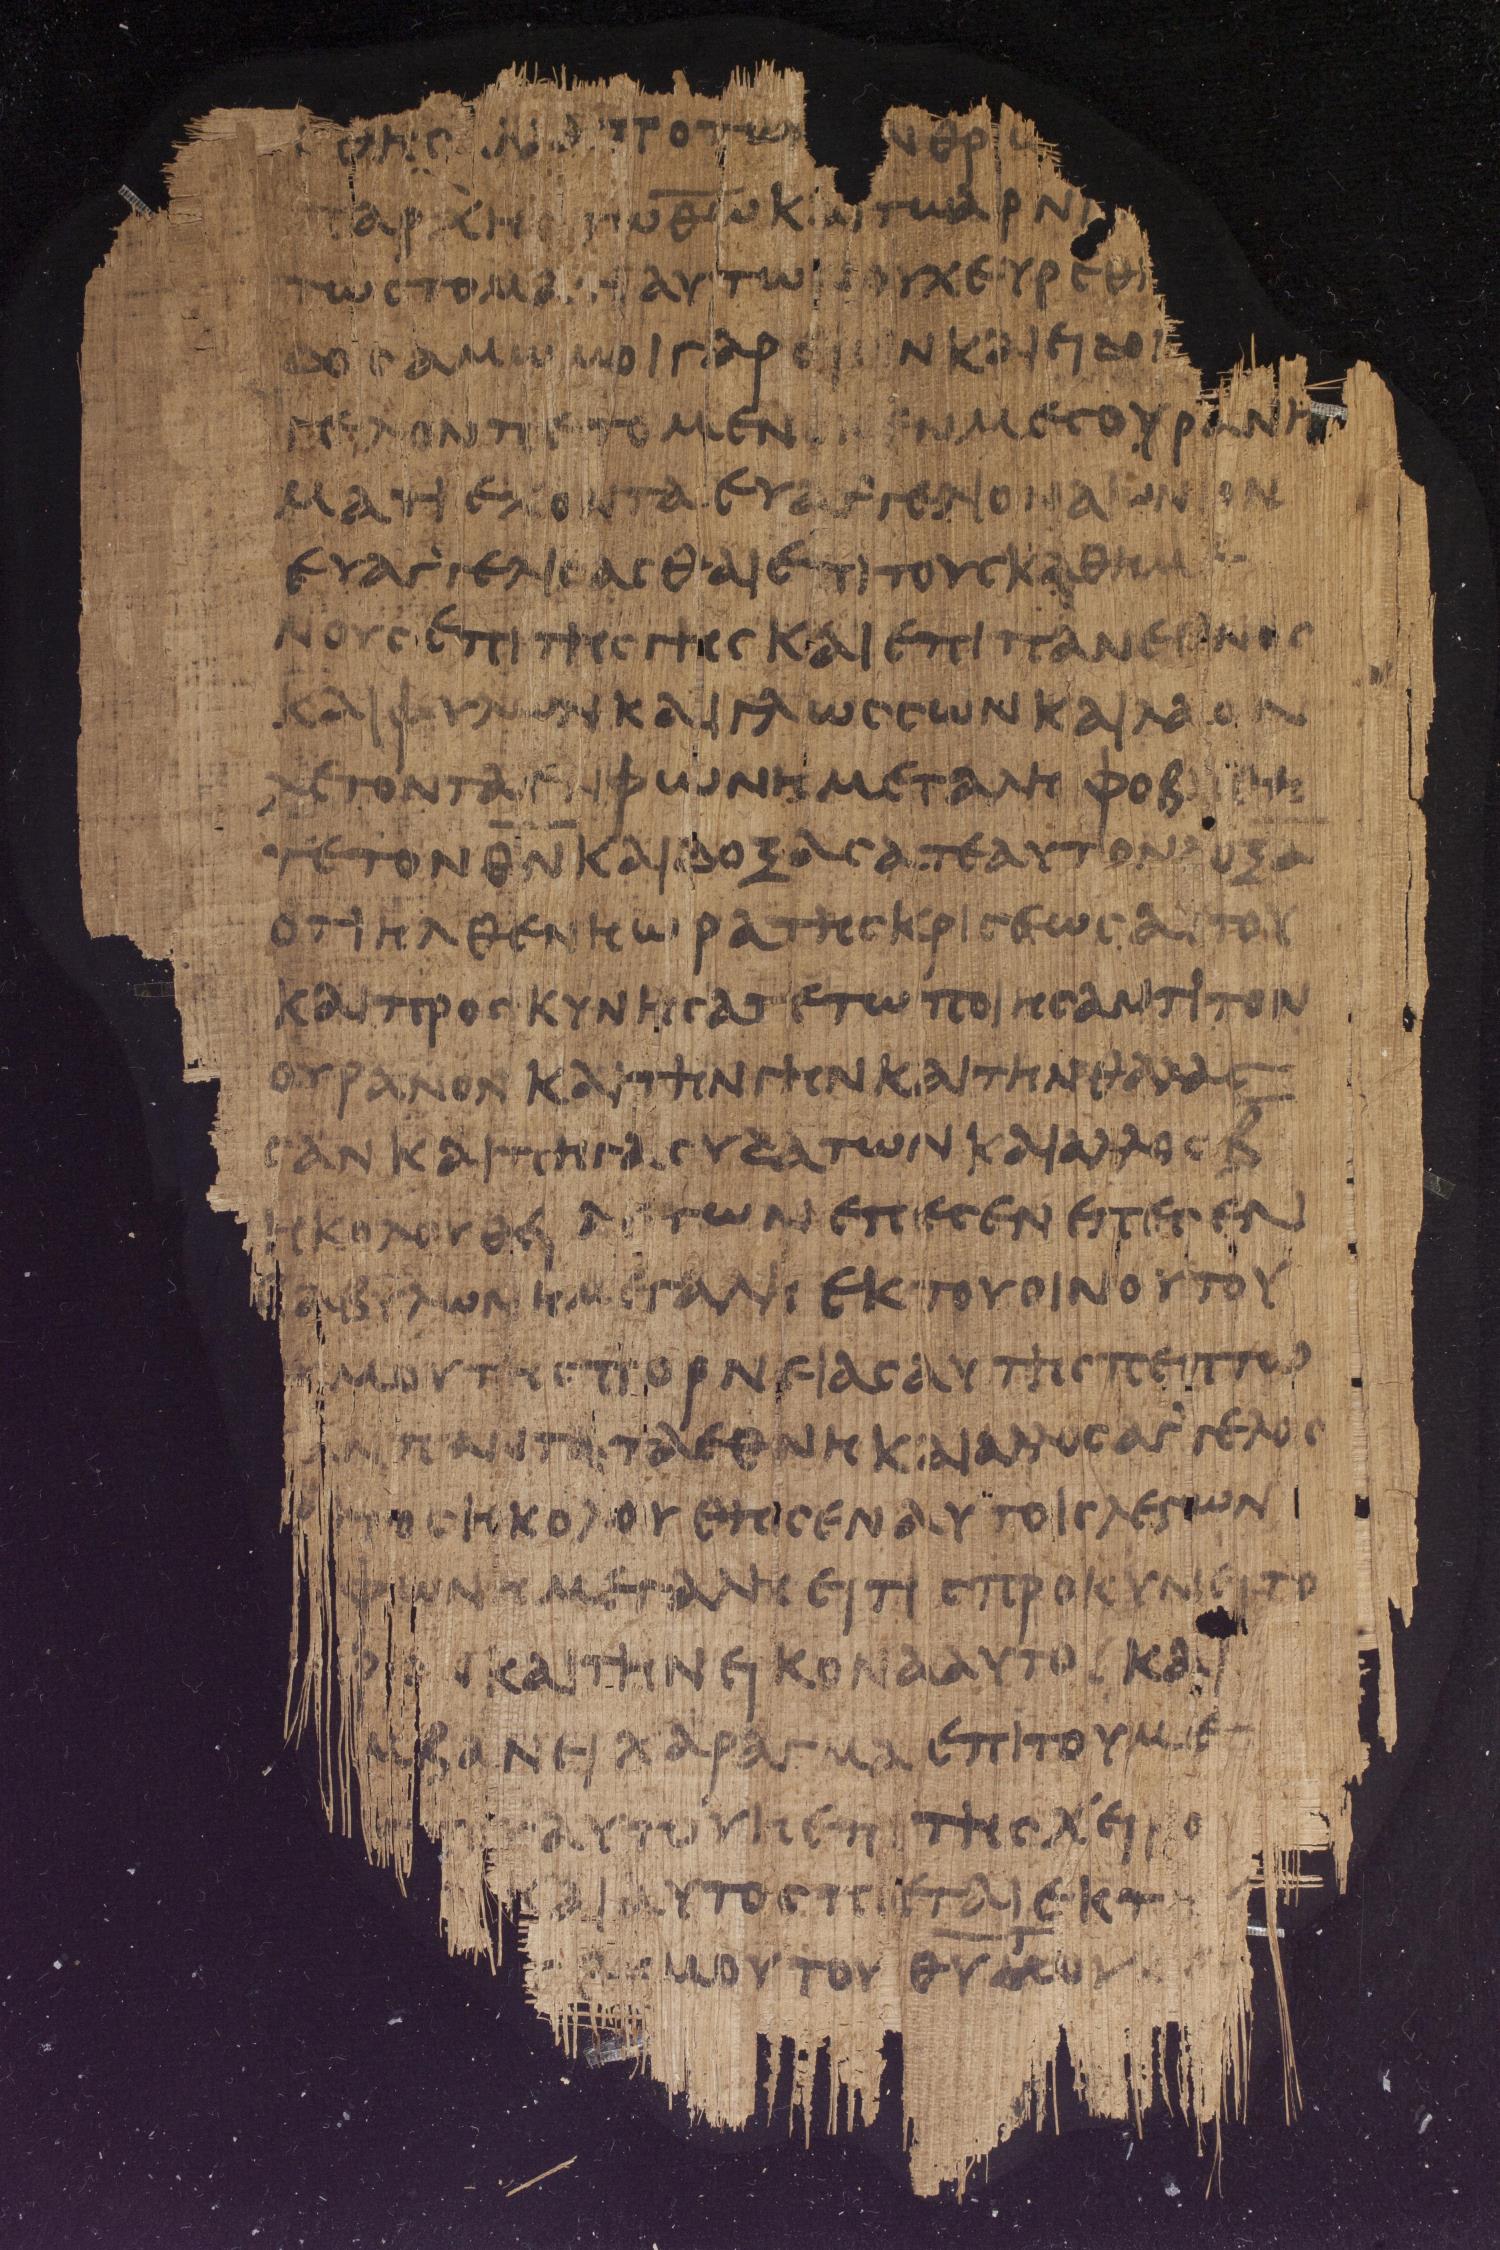 ΤΩΝ ΝΘΡΩ
ΤΑΡΧΗϹ ΤΩ Θ̅Ω̅ ΚΑΙ ΤΩ ΑΡΝΙ
ΤΩ ϹΤΟΜΑΤΙ ΑΥΤΩΝ ΟΥΧ ΕΥΡΕΘΗ
ΔΟϹ ΑΜΩΜΟΙ ΓΑΡ ΕΙϹΙΝ ΚΑΙ ΕΙΔΟΝ
ΓΕΛΟΝ ΠΕΤΟΜΕΝΟΝ ΕΝ ΜΕϹΟΥΡΑΝΗ
ΜΑΤΙ ΕΧΟΝΤΑ ΕΥΑΓΓΕΛΙΟΝ ΑΙΩΝΙΟΝ
ΕΥΑΓΓΕΛΙϹΑϹΘΑΙ ΕΠΙ ΤΟΥϹ ΚΑΘΗΜΕ
ΝΟΥϹ ΕΠΙ ΤΗϹ ΓΗϹ ΚΑΙ ΕΠΙ ΠΑΝ ΕΘΝΟϹ
ΚΑΙ ΦΥΛΩΝ ΚΑΙ ΓΛΩϹϹΩΝ ΚΑΙ ΛΑΟΝ
ΛΕΓΟΝΤΑ ΕΝ ΦΩΝΗ ΜΕΓΑΛΗ ΦΟΒΗΘΗ
ΤΕ ΤΟΝ Θ̅Ν̅ ΚΑΙ ΔΟΞΑϹΑΤΕ ΑΥΤΟΝ ΔΟΞΑ
ΟΤΙ ΗΛΘΕΝ Η ΩΡΑ ΤΗϹ ΚΡΙϹΕΩϹ ΑΥΤΟΥ
ΚΑΙ ΠΡΟϹΚΥΝΗϹΑΤΕ ΤΩ ΠΟΙΗϹΑΝΤΙ ΤΟΝ
ΟΥΡΑΝΟΝ ΚΑΙ ΤΗΝ ΓΗΝ ΚΑΙ ΤΗΝ ΘΑΛΑϹ
ϹΑΝ ΚΑΙ ΠΗΓΑϹ ΥΔΑΤΩΝ ΚΑΙ ΑΛΛΟϹ Β̅
ΗΚΟΛΟΥΘΕΙ ΛΕΓΩΝ ΕΠΕϹΕΝ ΕΠΕϹΕΝ
ΒΑΒΥΛΩΝ Η ΜΕΓΑΛΗ ΕΚ ΤΟΥ ΟΙΝΟΥ ΤΟΥ
ΜΟΥ ΤΗϹ ΠΟΡΝΕΙΑϹ ΑΥΤΗϹ ΠΕΠΤΩ
ΑΝ ΠΑΝΤΑ ΤΑ ΕΘΝΗ ΚΑΙ ΑΛΛΟϹ ΑΓΓΕΛΟϹ
ΤΟϹ ΗΚΟΛΟΥΘΗϹΕΝ ΑΥΤΟΙϹ ΛΕΓΩΝ
ΦΩΝΗ ΜΕΓΑΛΗ ΕΙ ΤΙϹ ΠΡΟΚΥΝΕΙ ΤΟ
ΚΑΙ ΤΗΝ ΕΙΚΟΝΑ ΑΥΤΟΥ ΚΑΙ
ΜΒΑΝΕΙ ΧΑΡΑΓΜΑ ΕΠΙ ΤΟΥ ΜΕΤ
ΑΥΤΟΥ Η ΕΠΙ ΤΗϹ ΧΕΙΡΟ
ΚΑΙ ΑΥΤΟϹ ΠΙΕΤΑΙ ΕΚ Τ
ΜΟΥ ΤΟΥ ΘΥΜΟΥ